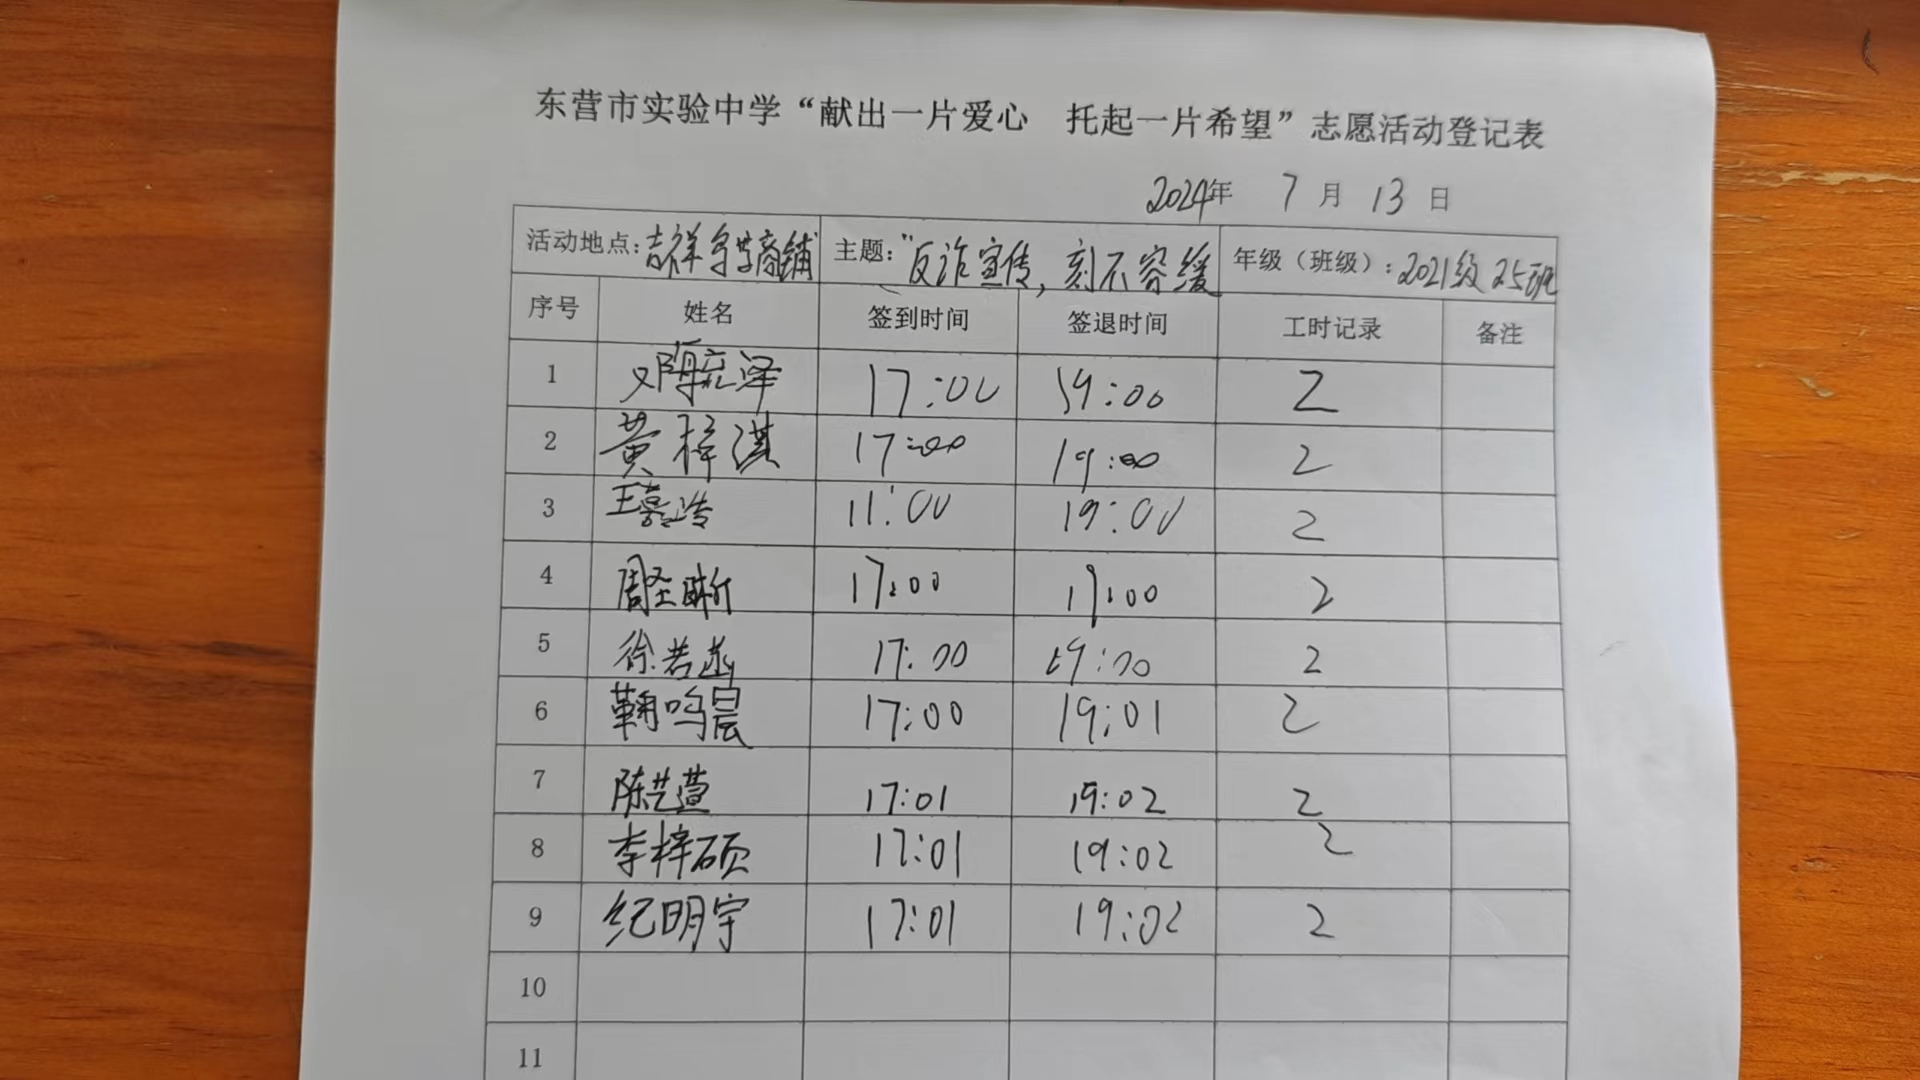 东营市实验中学“献出一片爱心 托起一片希望”志愿活动登记表
2024年 7月 13日
活动地点：吉祥 商铺 主题：“反诈宣传，刻不容缓 年级（班级）：2021级25班
序号 姓名 签到时间 签退时间 工时记录 备注
1 泽 17:00 19:00 2
2 黄梓淇 17:00 19:00 2
3 王 11:00 19:00 2
4 周圣晰 17:00 19:00 2
5 徐若菡 17:00 19:00 2
6 鞠鸣晨 17:00 19:01 2
7 陈艺萱 17:01 19:02 2
8 李梓硕 17:01 19:02 2
9 纪明宇 17:01 19:02 2
10
11